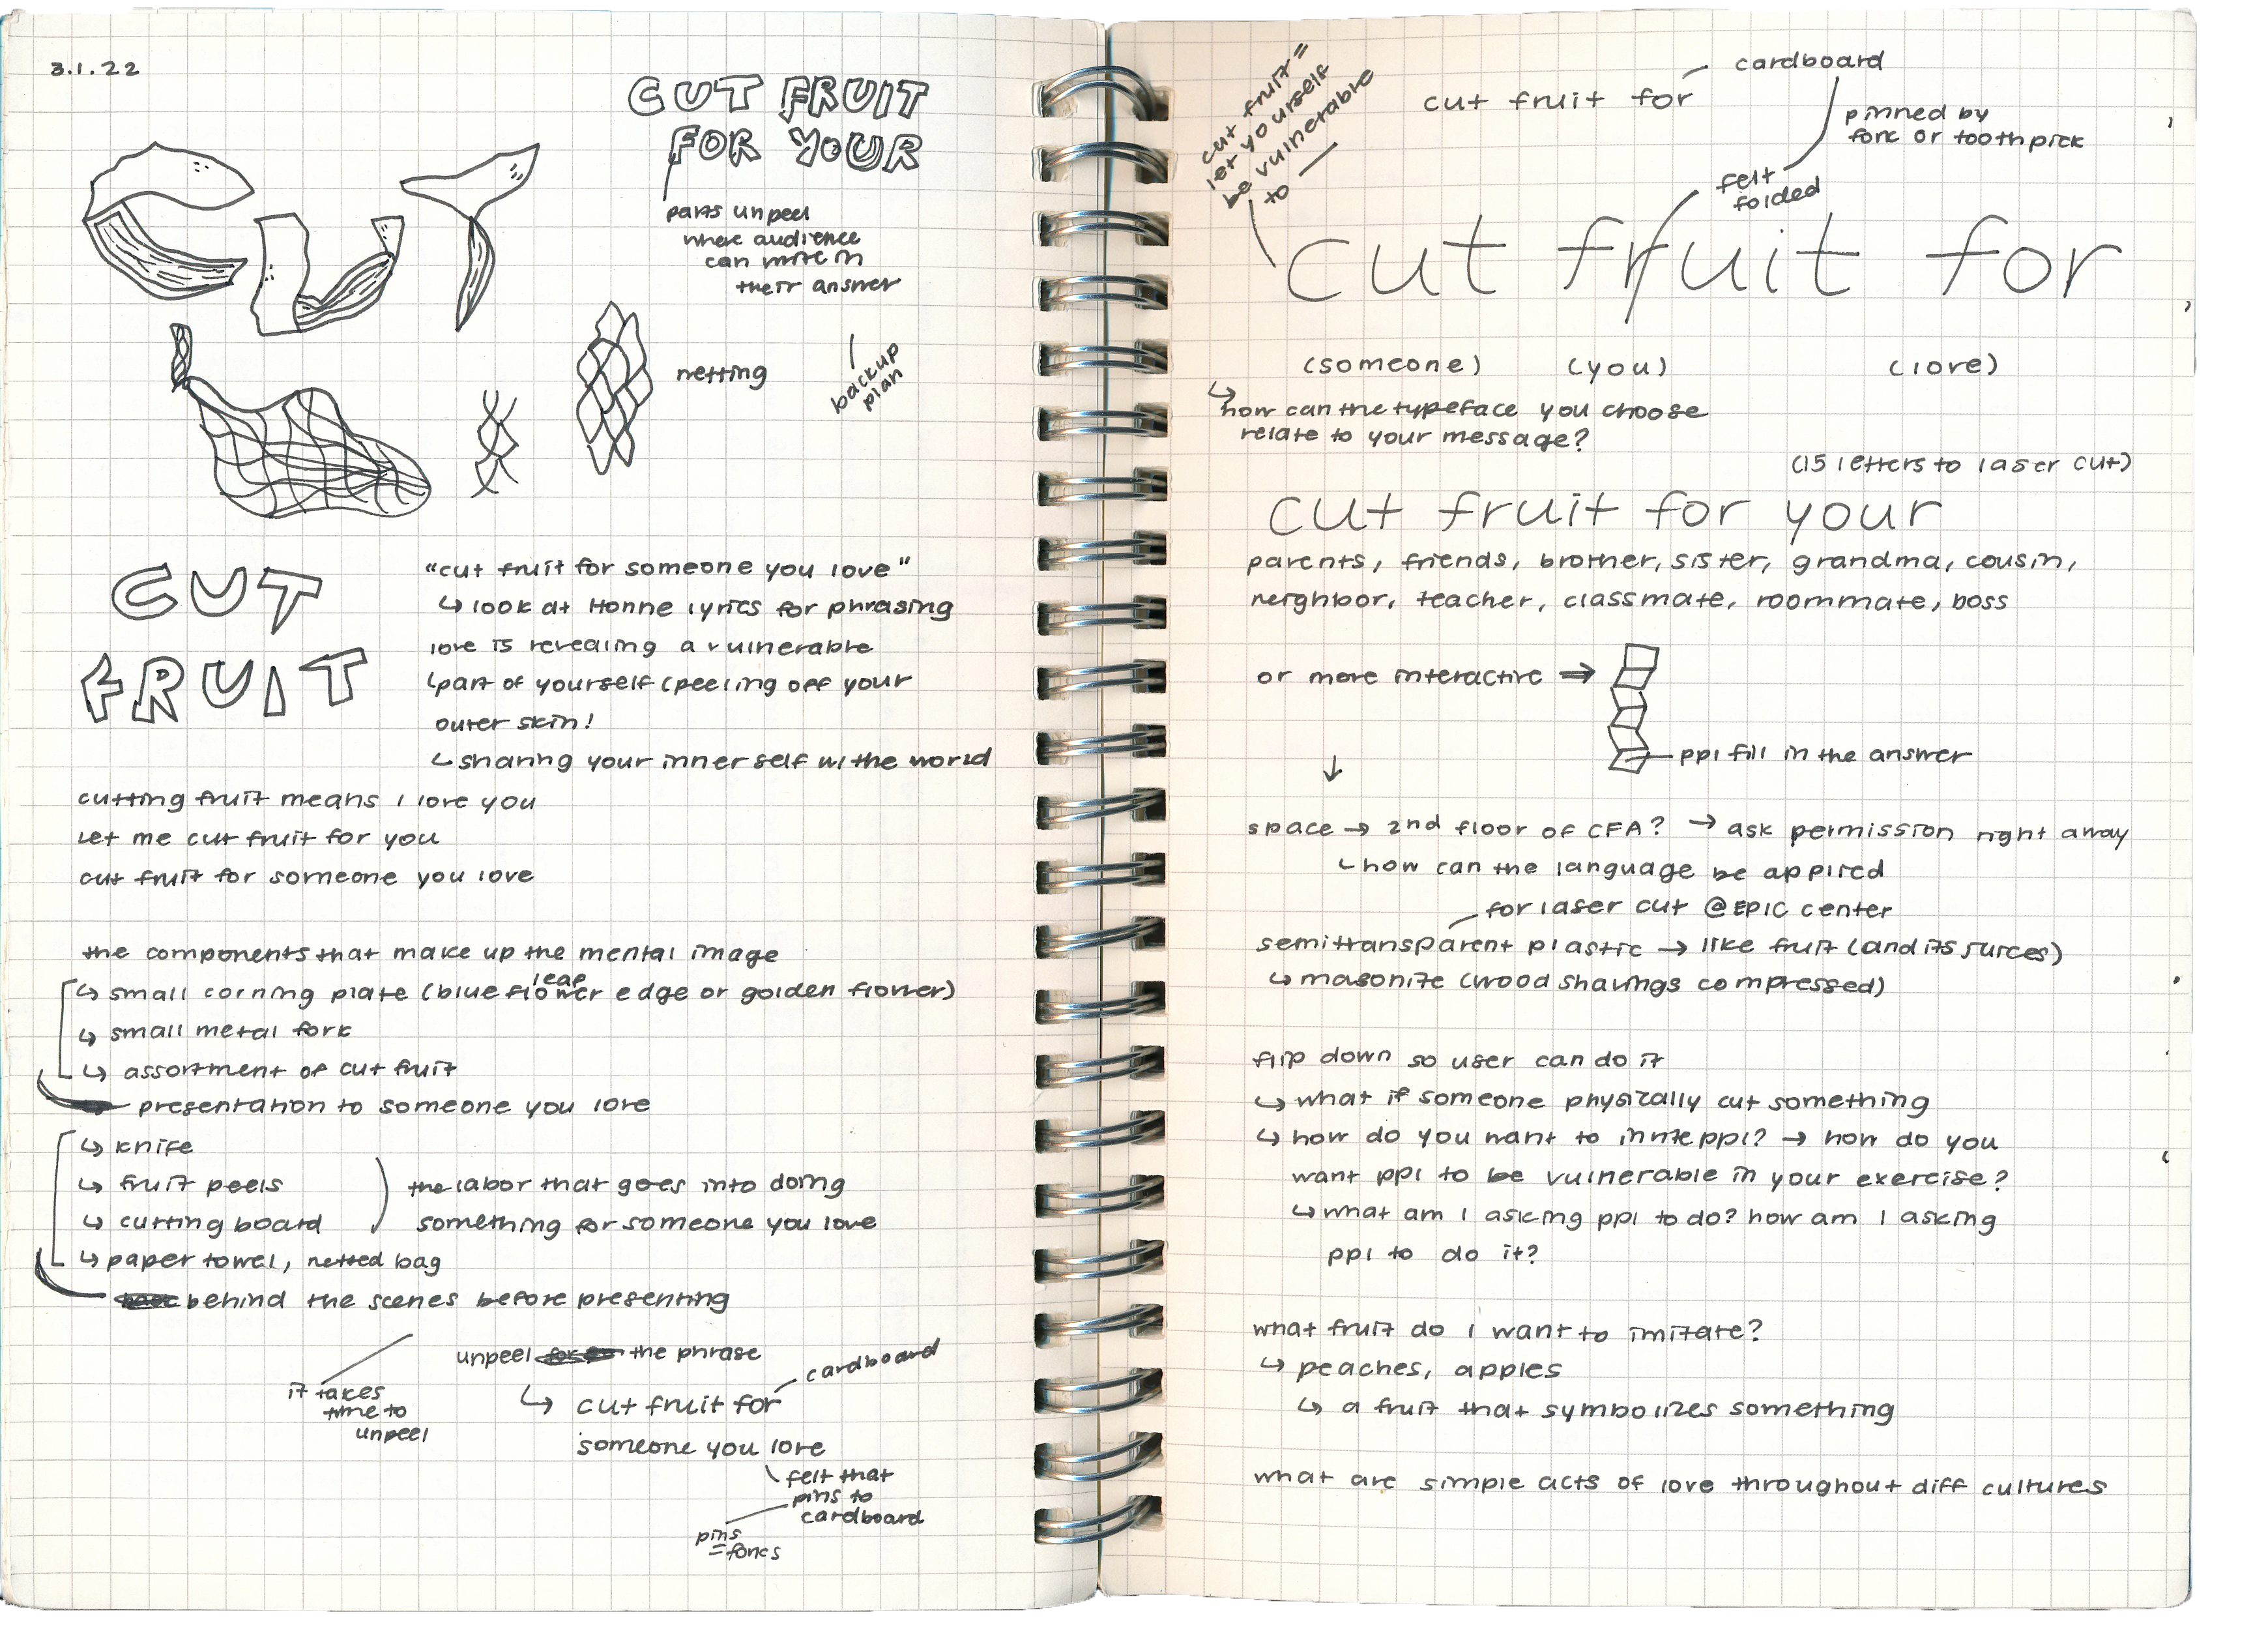 3.1.22
CUT FRUIT
FOR YOUR
parts unpeel
where audience
can write in
their answer
CUT
netting
backup
plan
CUT
FRUIT
"cut fruit for someone you love"
↳ look at Honne lyrics for phrasing
love is revealing a vulnerable
↳ part of yourself (peeling off your
outer skin!
↳ sharing your inner self w/ the world
cutting fruit means i love you
let me cut fruit for you
cut fruit for someone you love
the components that make up the mental image
leaf
↳ small corning plate (blue flower edge or golden flower)
↳ small metal fork
↳ assortment of cut fruit
presentation to someone you love
↳ knife
↳ fruit peels
↳ cutting board
the labor that goes into doing
something for someone you love
↳ paper towel, netted bag
behind the scenes before presenting
it takes
time to
unpeel
unpeel the phrase
cardboard
↳ cut fruit for
someone you love
felt that
pins to
cardboard
pins
= forks
cut fruit =
let yourself
be vulnerable
to —
cut fruit for
cardboard
pinned by
fork or toothpick
felt
folded
cut fruit for
(someone) (you) (love)
↳ how can the typeface you choose
relate to your message?
(15 letters to laser cut)
cut fruit for your
parents, friends, brother, sister, grandma, cousin,
neighbor, teacher, classmate, roommate, boss
or more interactive ⇒
ppl fill in the answer
↓
space → 2nd floor of CFA? → ask permission right away
↳ how can the language be applied
for laser cut @ EPIC center
semitransparent plastic → like fruit (and its juices)
↳ masonite (wood shavings compressed)
flip down so user can do it
↳ what if someone physically cut something
↳ how do you want to invite ppl? → how do you
want ppl to be vulnerable in your exercise?
↳ what am i asking ppl to do? how am i asking
ppl to do it?
what fruit do i want to imitate?
↳ peaches, apples
↳ a fruit that symbolizes something
what are simple acts of love throughout diff cultures